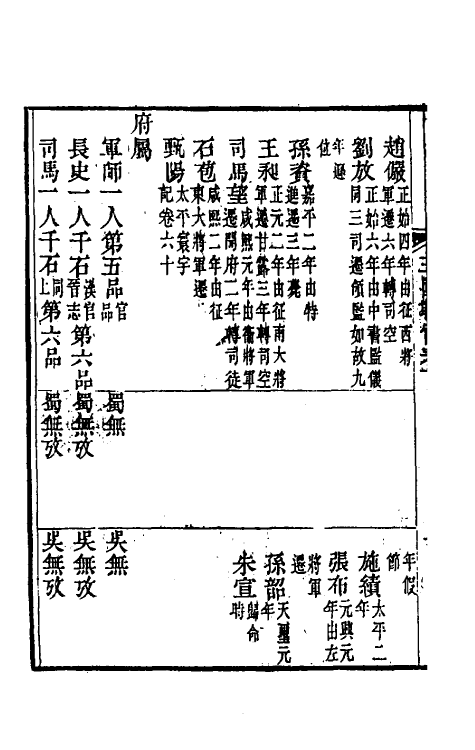 趙儼正始四年由征西將軍遷六年轉司空
劉放正始六年由中書監儀同三司遷領監如故九年遜位
孫資嘉平二年由特進遷三年薨
王昶正元二年由征南大將軍遷甘露三年轉司空
司馬望咸熙元年由衞將軍遷開府二年轉司徒
石苞咸熙二年由征東大將軍遷
甄暢太平寰宇記卷六十
府屬
軍師一人第五品官品
長史一人千石漢官晉志第六品
司馬一人千石同上第六品
蜀無
蜀無攷
蜀無攷
年假節
施績太平二年
張布元興元年由左將軍遷
孫韶天璽元年
朱宣歸命時
吳無
吳無攷
吳無攷